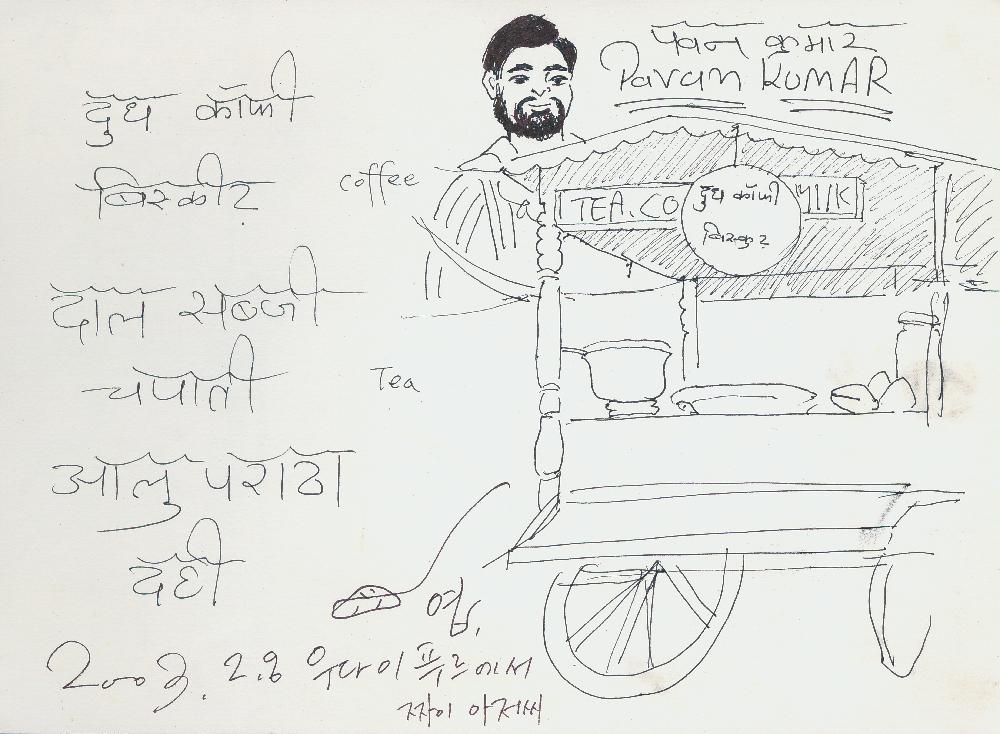 पवन कुमार
Pavan KUMAR
दुध कॉफी
बिस्कीट
coffee
TEA.CO
MILK
दुध कॉफी
बिस्कुट
दाल सब्जी
चपाती
Tea
आलु पराठा
दही
2003. 2.8 우다이 푸르에서
짜이 아저씨